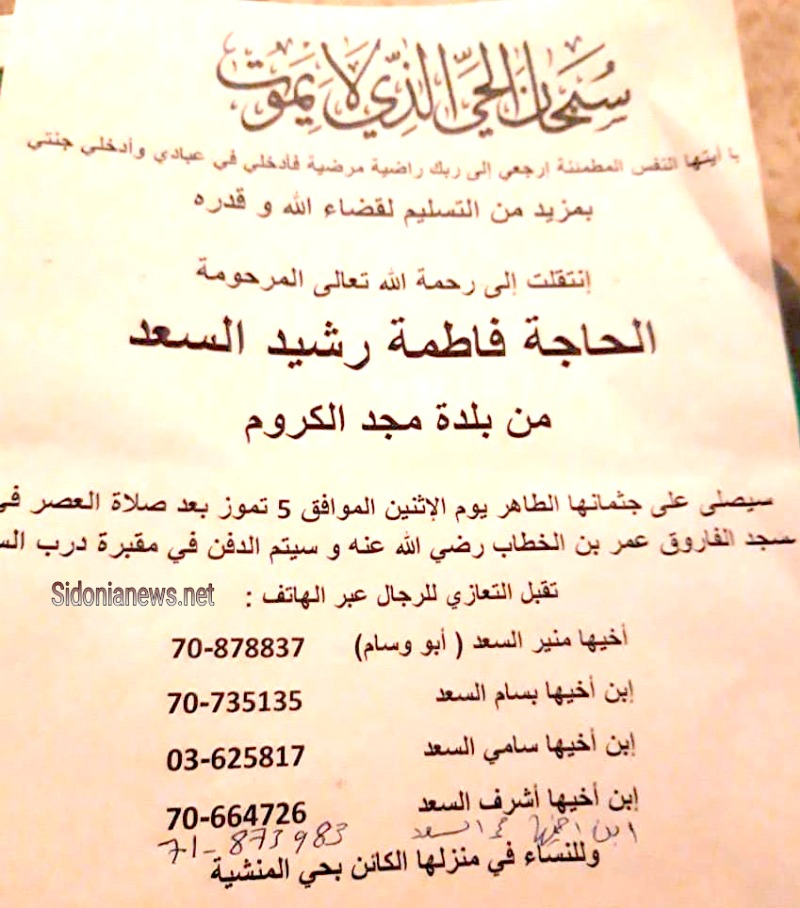 سُبْحَانَ الحَيِّ الَّذِي لَا يَمُوتُ
يا أيتها النفس المطمئنة إرجعي إلى ربك راضية مرضية فأدخلي في عبادي وأدخلي جنتي
بمزيد من التسليم لقضاء الله و قدره
إنتقلت إلى رحمة الله تعالى المرحومة
الحاجة فاطمة رشيد السعد
من بلدة مجد الكروم
سيصلى على جثمانها الطاهر يوم الإثنين الموافق 5 تموز بعد صلاة العصر في
سجد الفاروق عمر بن الخطاب رضي الله عنه و سيتم الدفن في مقبرة درب الس
Sidonianews.net
تقبل التعازي للرجال عبر الهاتف :
أخيها منير السعد ( أبو وسام) 70-878837
إبن أخيها بسام السعد 70-735135
إبن أخيها سامي السعد 03-625817
إبن أخيها أشرف السعد 70-664726
ابن اخيها السعد 71-873983
وللنساء في منزلها الكائن بحي المنشية